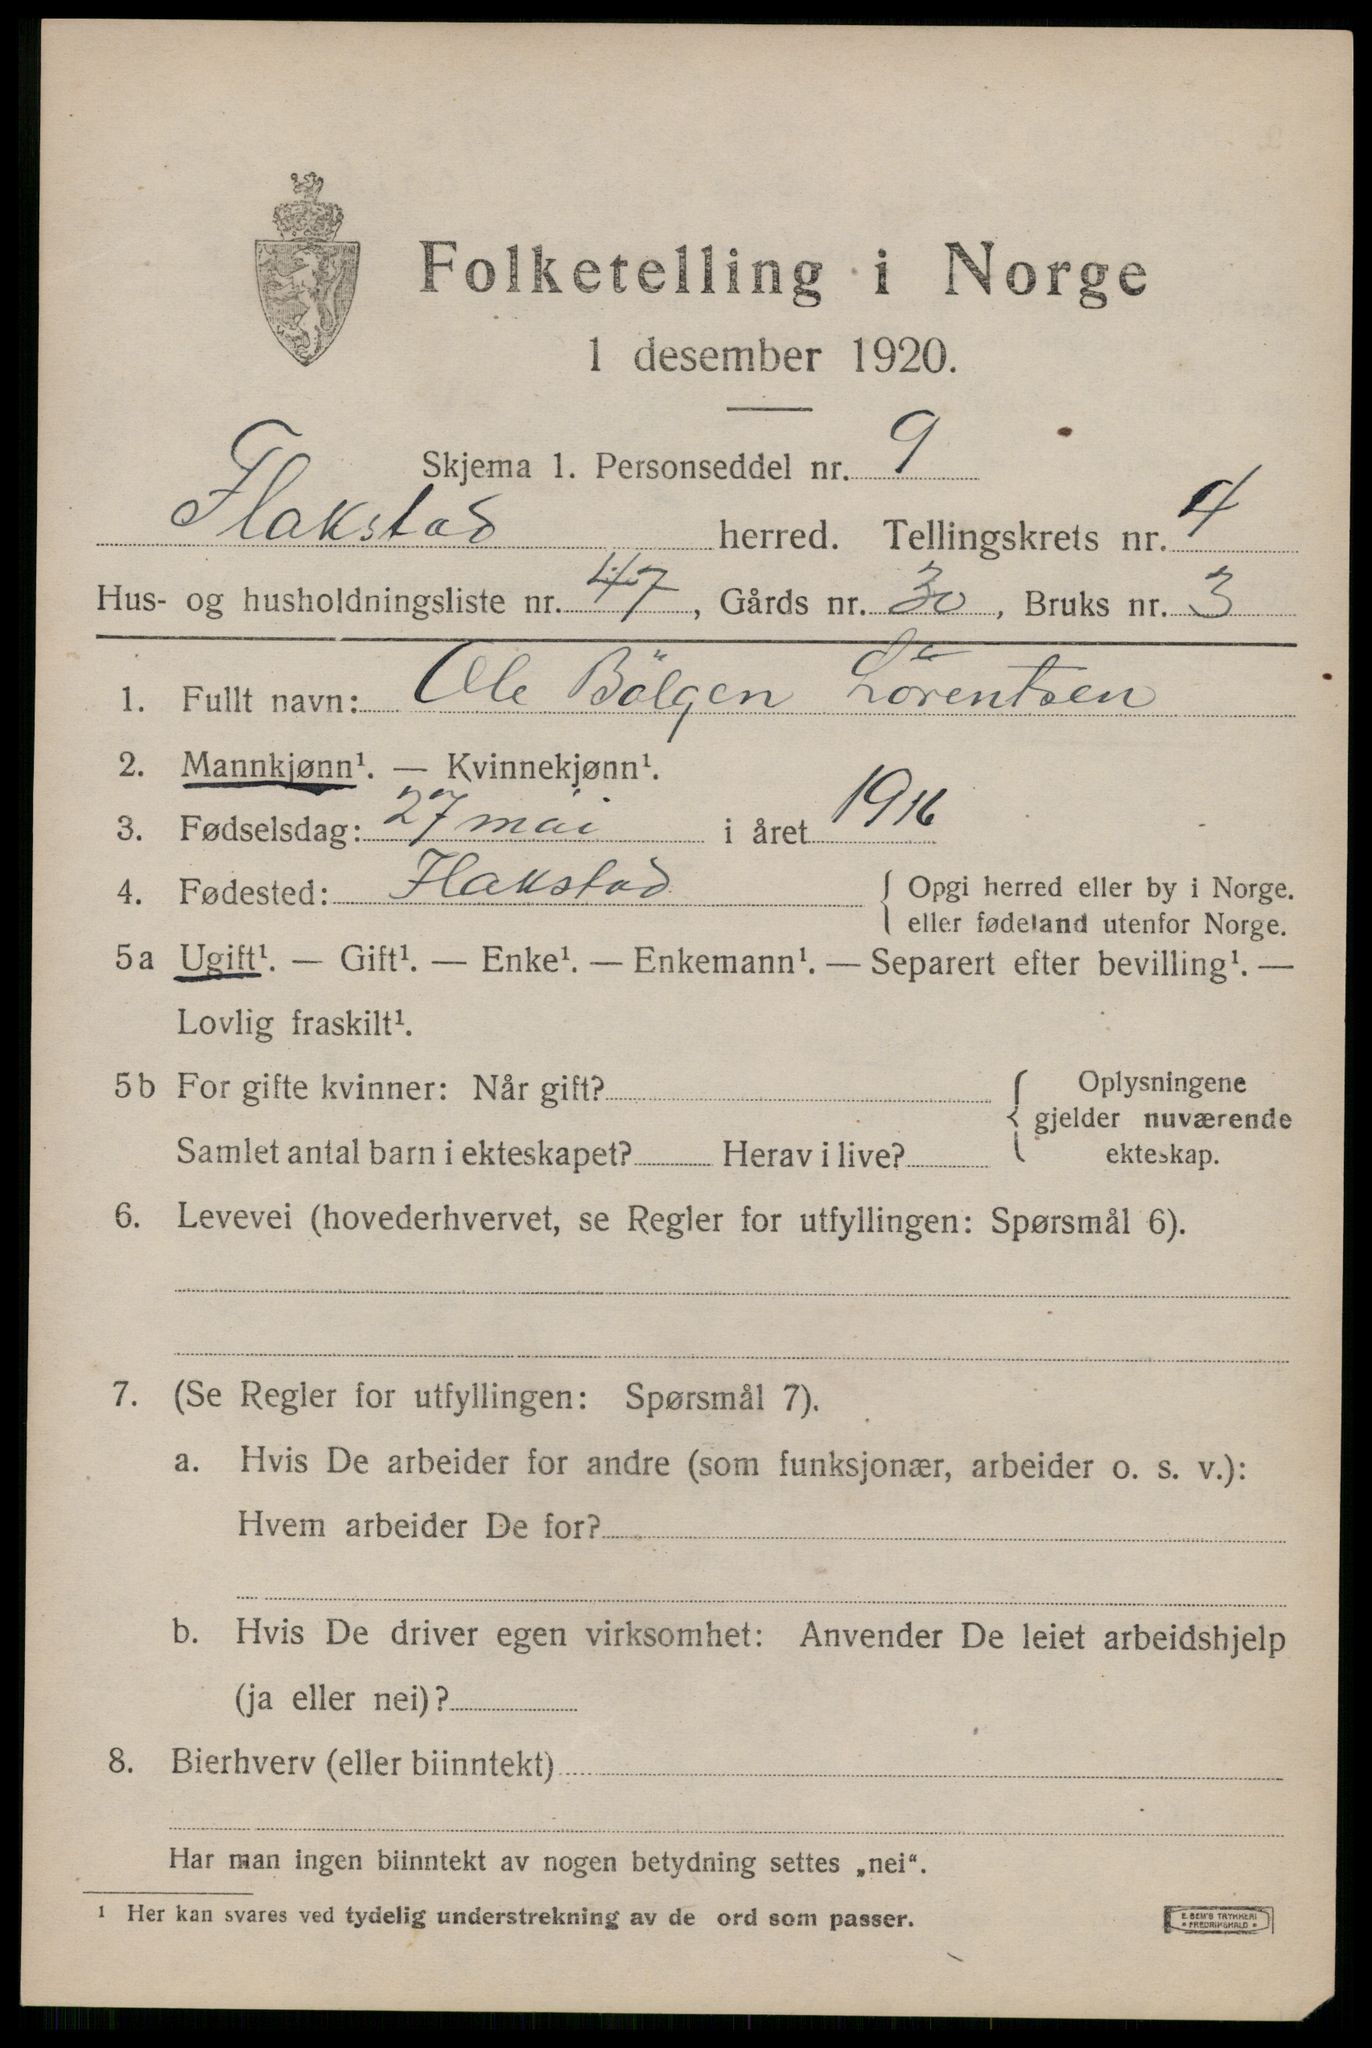 Folketelling i Norge
1 desember 1920.
Skjema 1. Personseddel nr. 9
Flakstad herred. Tellingskrets nr. 4
Hus- og husholdningsliste nr. 47, Gårds nr. 30, Bruks nr. 3
1. Fullt navn: Ole Bölgen Lorentsen
2. Mannkjønn¹. — Kvinnekjønn¹.
3. Fødselsdag: 27 mai i året 1916
4. Fødested: Flakstad { Opgi herred eller by i Norge.
eller fødeland utenfor Norge.
5a Ugift¹. — Gift¹. — Enke¹. — Enkemann¹. — Separert efter bevilling¹. —
Lovlig fraskilt¹.
5b For gifte kvinner: Når gift? { Oplysningene
gjelder nuværende
Samlet antal barn i ekteskapet? Herav i live? ekteskap.
6. Levevei (hovederhvervet, se Regler for utfyllingen: Spørsmål 6).
7. (Se Regler for utfyllingen: Spørsmål 7).
a. Hvis De arbeider for andre (som funksjonær, arbeider o. s. v.):
Hvem arbeider De for?
b. Hvis De driver egen virksomhet: Anvender De leiet arbeidshjelp
(ja eller nei)?
8. Bierhverv (eller biinntekt)
Har man ingen biinntekt av nogen betydning settes „nei“.
¹ Her kan svares ved tydelig understrekning av de ord som passer.
E. SEM'S TRYKKERI
• FREDRIKSHALD •